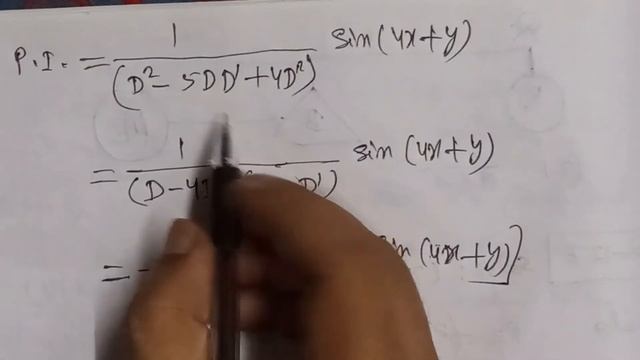 P.I. = 1/(D² - 5DD' + 4D'²) sin(4x+y)
= 1/(D-4 D') sin(4x+y)
= sin(4x+y)]